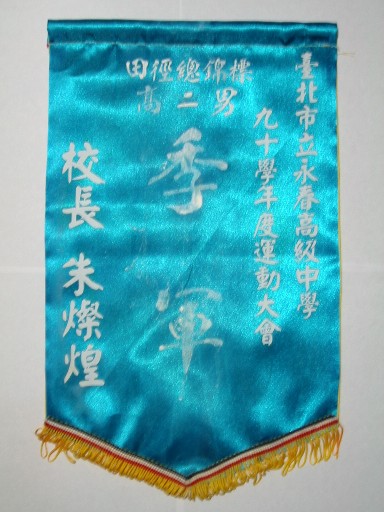 臺北市立永春高級中學
九十學年度運動大會
田徑總錦標
高二男
季軍
校長 朱燦煌